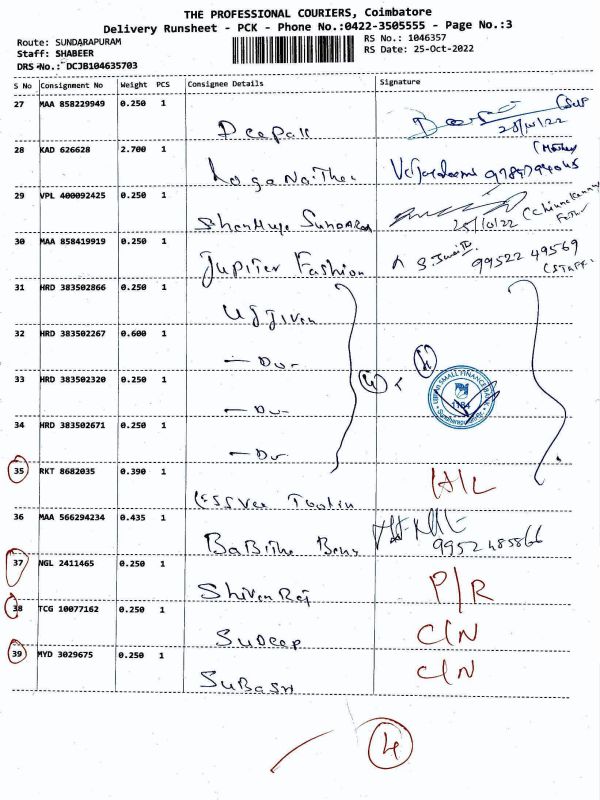 THE PROFESSIONAL COURIERS, Coimbatore
Delivery Runsheet - PCK - Phone No.:0422-3505555 - Page No.:3
Route: SUNDARAPURAM
RS No.: 1046357
Staff: SHABEER
RS Date: 25-Oct-2022
DRS No.: DCJB104635703
S No Consignment No Weight PCS Consignee Details Signature
27 MAA 858229949 0.250 1
Deepak
25/10/22
28 KAD 626628 2.700 1
(Mother)
29 VPL 400092425 0.250 1
Shanmuga Sundaram
25/10/22
30 MAA 858419919 0.250 1
Jupiter Fashion
99522 49569
(STAFF)
31 HRD 383502866 0.250 1
Ujjivan
32 HRD 383502267 0.600 1
— Do —
4
4
33 HRD 383502320 0.250 1
— Do —
UJJIVAN SMALL FINANCE BANK
1184
Sundharapuram
34 HRD 383502671 0.250 1
— Do —
35 RKT 8682035 0.390 1
36 MAA 566294234 0.435 1
9952485866
37 NGL 2411465 0.250 1
Shivan Raj
P/R
38 TCG 10077162 0.250 1
Sudeep
C/N
39 MYD 3029675 0.250 1
Subash
C/N
4